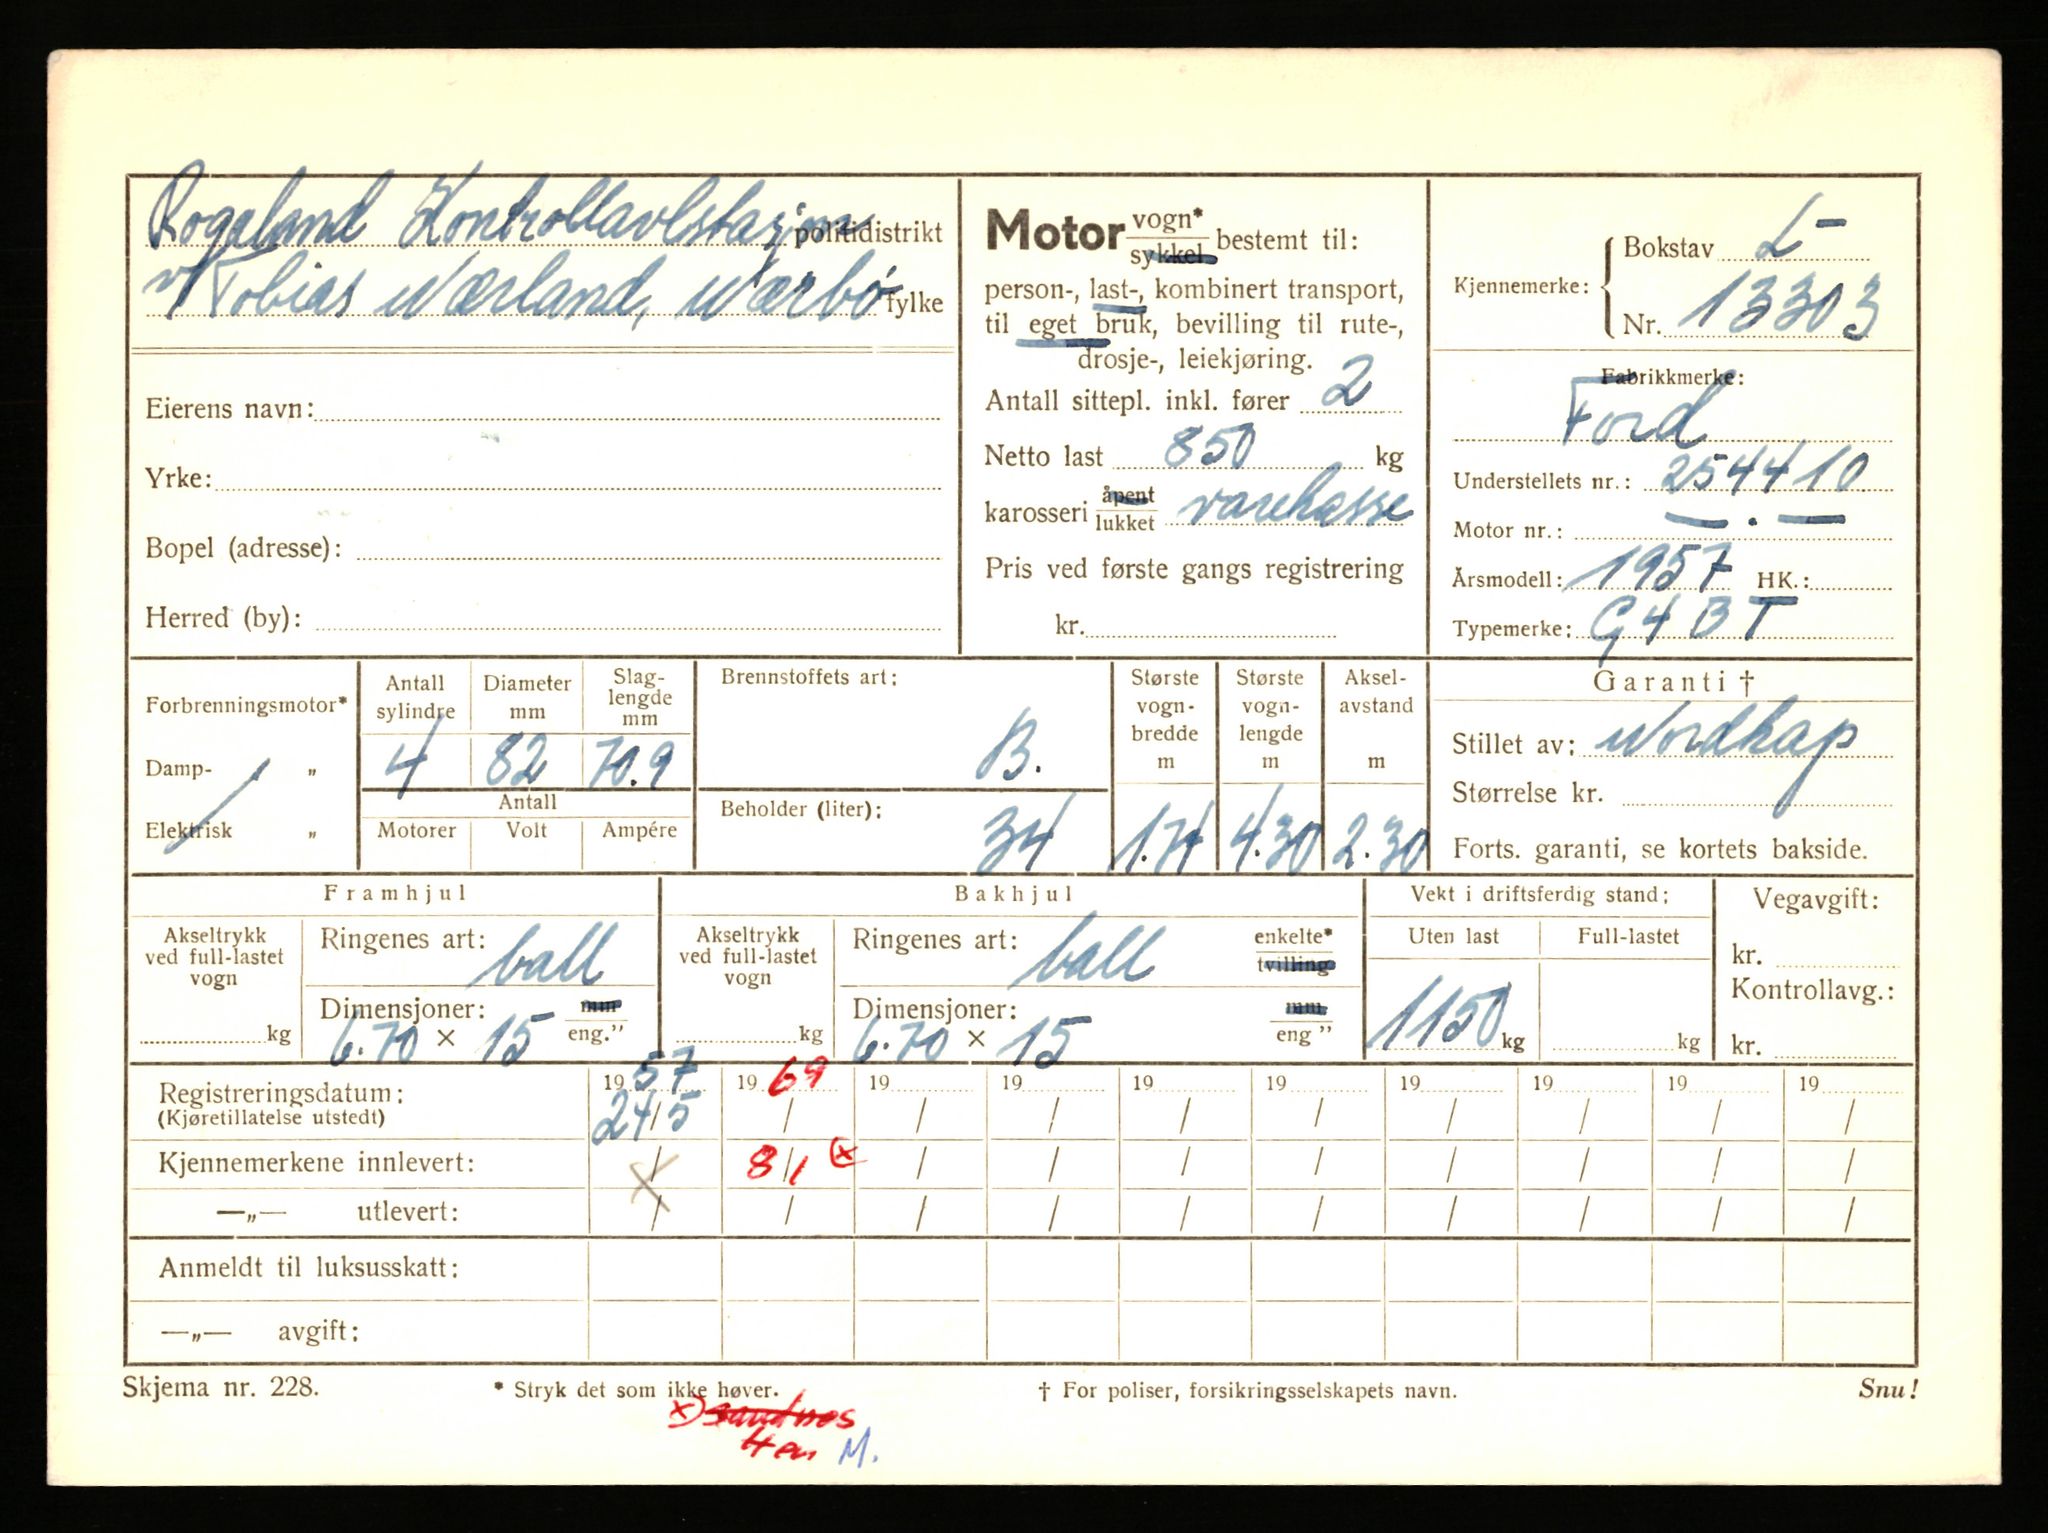 Rogaland Kontrollavlstasjon politidistrikt
v/ Tobias Nærland, Nærbø fylke
Eierens navn:
Yrke:
Bopel (adresse):
Herred (by):
Motor vogn* / sykkel bestemt til:
person-, last-, kombinert transport,
til eget bruk, bevilling til rute-,
drosje-, leiekjøring.
Antall sittepl. inkl. fører 2
Netto last 850 kg
karosseri åpent / lukket varekasse
Pris ved første gangs registrering
kr.
Kjennemerke: Bokstav L-
Nr. 13303
Fabrikkmerke:
Ford
Understellets nr.: 254410
Motor nr.: — . —
Årsmodell: 1957 HK.:
Typemerke: G4BT
Forbrenningsmotor*
Damp- „
Elektrisk „
Antall sylindre 4
Diameter mm 82
Slag-lengde mm 70.9
Antall
Motorer Volt Ampére
Brennstoffets art: B.
Beholder (liter): 34
Største vogn-bredde m 1.74
Største vogn-lengde m 4.30
Aksel-avstand m 2.30
Garanti †
Stillet av: Nordkap
Størrelse kr.
Forts. garanti, se kortets bakside.
Framhjul
Akseltrykk ved full-lastet vogn kg
Ringenes art: ball
Dimensjoner: mm
6.70 × 15 eng.”
Bakhjul
Akseltrykk ved full-lastet vogn kg
Ringenes art: ball enkelte* / tvilling
Dimensjoner: mm
6.70 × 15 eng ”
Vekt i driftsferdig stand:
Uten last Full-lastet
1150 kg kg
Vegavgift:
kr.
Kontrollavg.:
kr.
Registreringsdatum: 19 57 19 69 19 19 19 19 19 19 19 19
(Kjøretillatelse utstedt) 24/5 / / / / / / / / /
Kjennemerkene innlevert: / 8/1 (x) / / / / / / / /
—„— utlevert: / / / / / / / / / /
Anmeldt til luksusskatt:
—„— avgift:
Skjema nr. 228. * Stryk det som ikke høver. † For poliser, forsikringsselskapets navn. Snu!
x) Sandnes
M.